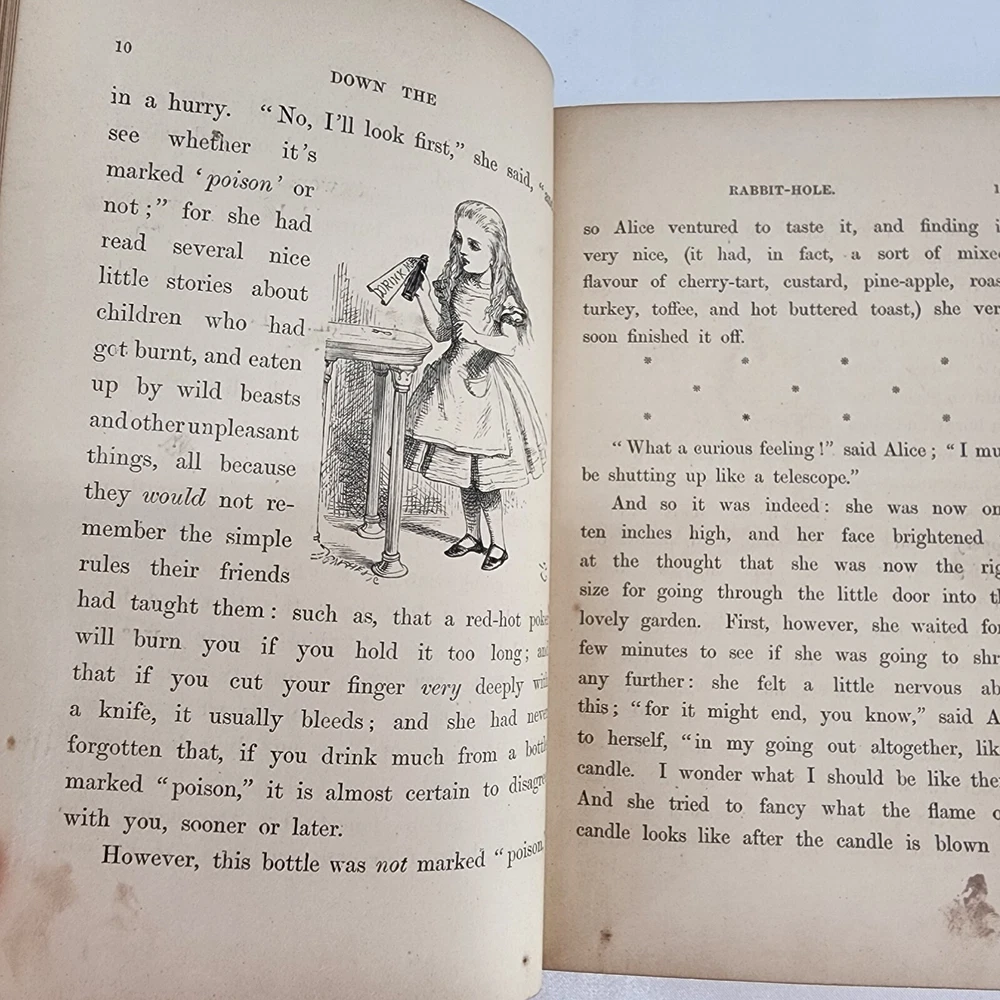 10
DOWN THE
in a hurry. “No, I'll look first,” she said, “and
see whether it's
marked ‘poison’ or
not;” for she had
read several nice
little stories about
children who had
got burnt, and eaten
up by wild beasts
and other unpleasant
things, all because
they would not re-
member the simple
rules their friends
had taught them: such as, that a red-hot poker
will burn you if you hold it too long; and
that if you cut your finger very deeply with
a knife, it usually bleeds; and she had never
forgotten that, if you drink much from a bottle
marked “poison,” it is almost certain to disagree
with you, sooner or later.
However, this bottle was not marked “poison,
DRINK ME
RABBIT-HOLE.
so Alice ventured to taste it, and finding i
very nice, (it had, in fact, a sort of mixe
flavour of cherry-tart, custard, pine-apple, roas
turkey, toffee, and hot buttered toast,) she ver
soon finished it off.
* * * *
* * *
* * * *
“What a curious feeling!” said Alice; “I mu
be shutting up like a telescope.”
And so it was indeed: she was now on
ten inches high, and her face brightened
at the thought that she was now the rig
size for going through the little door into th
lovely garden. First, however, she waited for
few minutes to see if she was going to shr
any further: she felt a little nervous ab
this; “for it might end, you know,” said A
to herself, “in my going out altogether, lik
candle. I wonder what I should be like the
And she tried to fancy what the flame o
candle looks like after the candle is blown